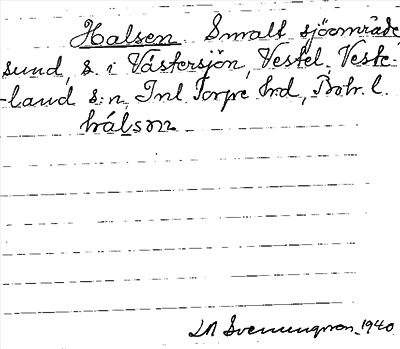 Halsen. Smalt sjöområde
sund, s. i Västersjön, Vestel. Veste-
-land s:n, Inl Torpe hd, Boh. l.
hálsən
LM Svenungsson 1940